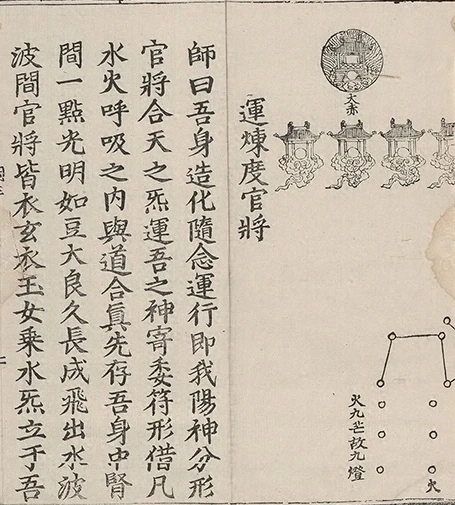 大赤
火
火九芒故九燈
運煉度官將
師曰吾身造化隨念運行即我陽神分形
官將合天之炁運吾之神寄委符形借凡
水火呼吸之内與道合真先存吾身中腎
間一點光明如豆大良久長成飛出水波
波間官將皆衣玄衣玉女乘水炁立于吾